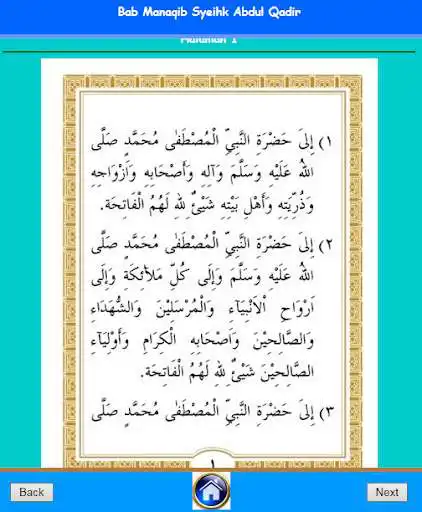 Bab Manaqib Syeihk Abdul Qadir
Halaman 1
١) إِلىَ حَضْرَةِ النَّبِيِّ الْمُصْطَفٰى مُحَمَّدٍ صَلَّى
اللهُ عَلَيْهِ وَسَلَّمَ وَآلِهِ وَأَصْحَابِهِ وَأَزْوَاجِهِ
وَذُرِّيَتِهِ وَأَهْلِ بَيْتِهِ شَيْئٌ لِلهِ لَهُمُ الْفَاتِحَة.
٢) إِلىَ حَضْرَةِ النَّبِيِّ الْمُصْطَفٰى مُحَمَّدٍ صَلَّى
اللهُ عَلَيْهِ وَسَلَّمَ وَإِلَى كُلِّ مَلَائِكَةِ وَإِلَى
اَرْوَاحِ الْاَنْبِيَآءِ وَالْمُرْسَلِيْنَ وَالشُّهَدَاءِ
وَالصَّالِحِيْنَ وَاَصْحَابِهِ الْكِرَامِ وَأَوْلِيَآءِ
الصَّالِحِيْنَ شَيْئٌ لِلهِ لَهُمُ الْفَاتِحَة.
٣) إِلىَ حَضْرَةِ النَّبِيِّ الْمُصْطَفٰى مُحَمَّدٍ صَلَّى
١
Back
Next